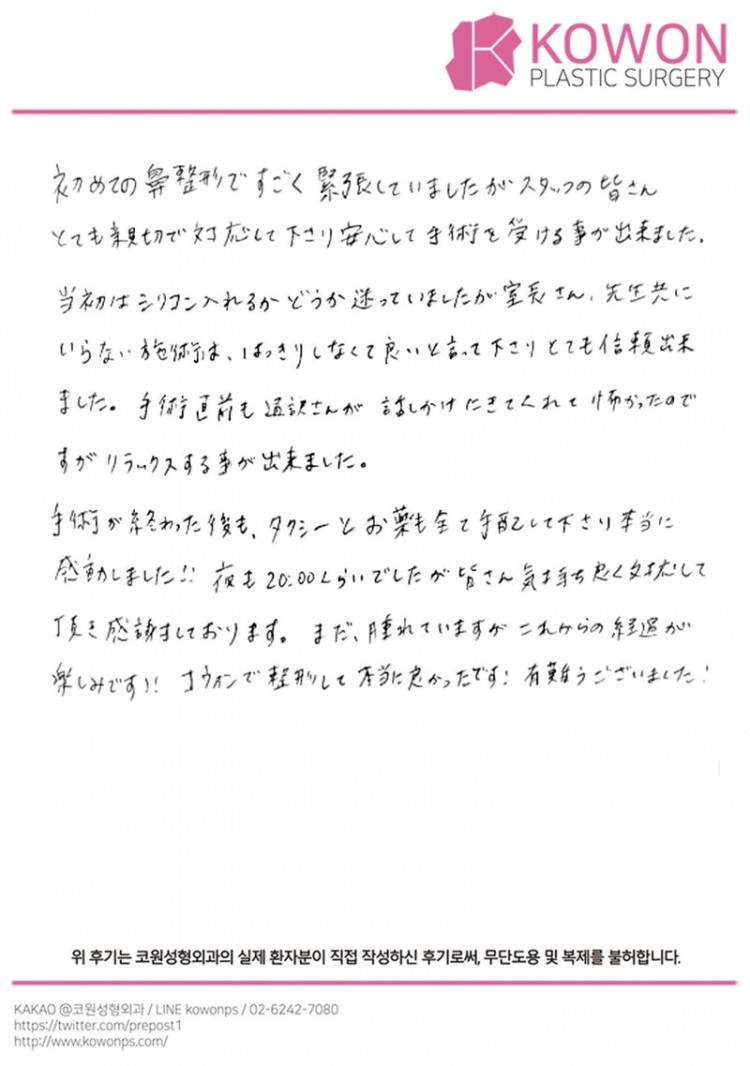 KOWON
PLASTIC SURGERY
初めての鼻整形ですごく緊張していましたがスタッフの皆さん
とても親切で対応して下さり安心して手術を受ける事が出来ました.
当初はシリコン入れるかどうか迷っていましたが室長さん、先生共に
いらない施術は、はっきりしなくて良いと言って下さりとても信頼出来
ました。手術直前も通訳さんが話しかけにきてくれて怖かったので
すがリラックスする事が出来ました。
手術が終わった後も、タクシーとお薬も全て手配して下さり本当に
感動しました!! 夜も20:00くらいでしたが皆さん気持ち良く対応して
頂き感謝しております。まだ、腫れていますがこれからの経過が
楽しみです!! コウォンで整形して本当に良かったです! 有難うございました!
위 후기는 코원성형외과의 실제 환자분이 직접 작성하신 후기로써, 무단도용 및 복제를 불허합니다.
KAKAO @코원성형외과 / LINE kowonps / 02-6242-7080
https://twitter.com/prepost1
http://www.kowonps.com/